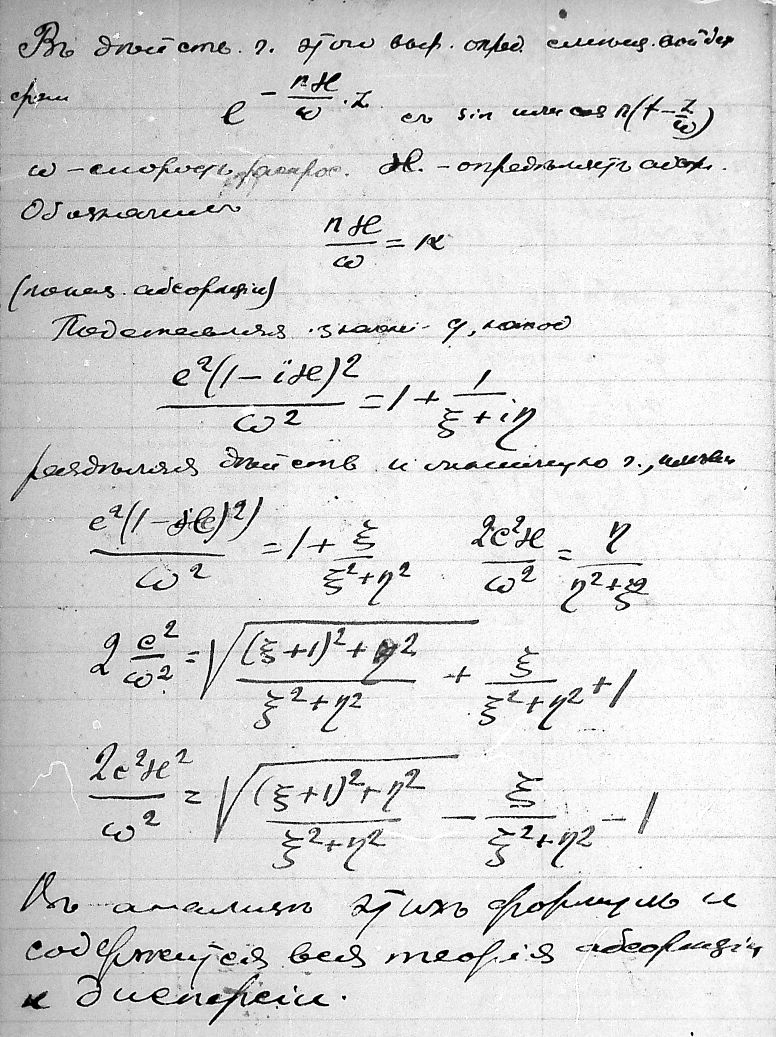 Въ дѣйств. ч. этого выр. опред.
e^{-\frac{nϰ}{ω}·z} съ sin или cos n(t-\frac{z}{ω})
ω – скорость распрос. ϰ. – опредѣляетъ абс.
Обозначимъ
\frac{nϰ}{ω} = κ
(показ. абсорпціи)
Подставляя значен. q, наход
\frac{c^2(1-iϰ)^2}{ω^2} = 1 + \frac{1}{ξ+iη}
раздѣляя дѣйств и мнимую ч., имѣем
\frac{c^2(1-ϰ)^2)}{ω^2} = 1 + \frac{ξ}{ξ^2+η^2} \frac{2c^2ϰ}{ω^2} = \frac{η}{η^2+ξ^2}
2\frac{c^2}{ω^2} = \sqrt{\frac{(ξ+1)^2+η^2}{ξ^2+η^2}} + \frac{ξ}{ξ^2+η^2} + 1
\frac{2c^2ϰ^2}{ω^2} = \sqrt{\frac{(ξ+1)^2+η^2}{ξ^2+η^2}} - \frac{ξ}{ξ^2+η^2} - 1
Въ анализѣ этихъ формулъ и
содержится вся теорія абсорпціи
и дисперсіи.